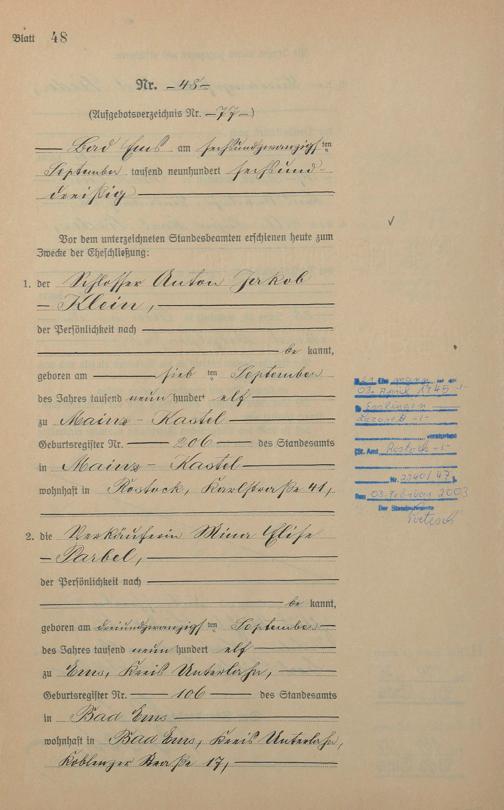 Blatt 48
Nr. 48
(Aufgebotsverzeichnis Nr. 77)
Bad Ems am sechsundzwanzigsten
September tausend neunhundert sechsund-
dreißig
Vor dem unterzeichneten Standesbeamten erschienen heute zum
Zwecke der Eheschließung:
1. der Schlosser Anton Jakob
Klein,
der Persönlichkeit nach
be kannt,
geboren am sieb ten September
des Jahres tausend neun hundert elf
zu Mainz-Kastel
Geburtsregister Nr. 206 des Standesamts
in Mainz-Kastel
wohnhaft in Rostock, Karlstraße 41,
2. die Verkäuferin Mina Elise
Parbel,
der Persönlichkeit nach
be kannt,
geboren am dreiundzwanzigsten September
des Jahres tausend neun hundert elf
zu Ems, Kreis Unterlahn,
Geburtsregister Nr. 106 des Standesamts
in Bad Ems
wohnhaft in Bad Ems, Kreis Unterlahn,
Koblenzer Straße 17,
03. April 1945
verstorben
St. Amt Rostock
Nr. 2240/47
03. Februar 2003
Der Standesbeamte